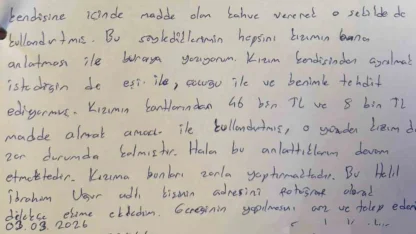 kendisine içinde madde olan kahve vererek o şekilde de
kullandırtmış. Bu söylediklerimin hepsini kızımın bana
anlatması ile buraya yazıyorum. Kızım kendisinden ayrılmak
istediğin de eşi ile, çocuğu ile ve benimle tehdit
ediyormuş. Kızımın kartlarından 46 bin TL ve 8 bin TL
madde almak amacı ile kullandırtmış, o yüzden kızım da
zor durumda kalmıştır. Hala bu anlattıklarım devam
etmektedir. Kızıma bunları zorla yaptırmaktadır. Bu Halil
İbrahim Uğur adlı kişinin adresini fotoğraf olarak
dilekçe ekime ekledim. Gereğinin yapılmasını arz ve talep ederim
03.03.2026